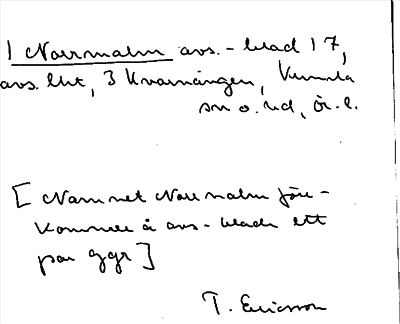 1 Norrmalm avs.-blad 17,
avs. lht, 3 Kvarnängen, Kumla
sn o. hd, Ör. l.
[Namnet Norrmalm före-
kommer å avs-blade ett
par ggr]
T. Ericsson